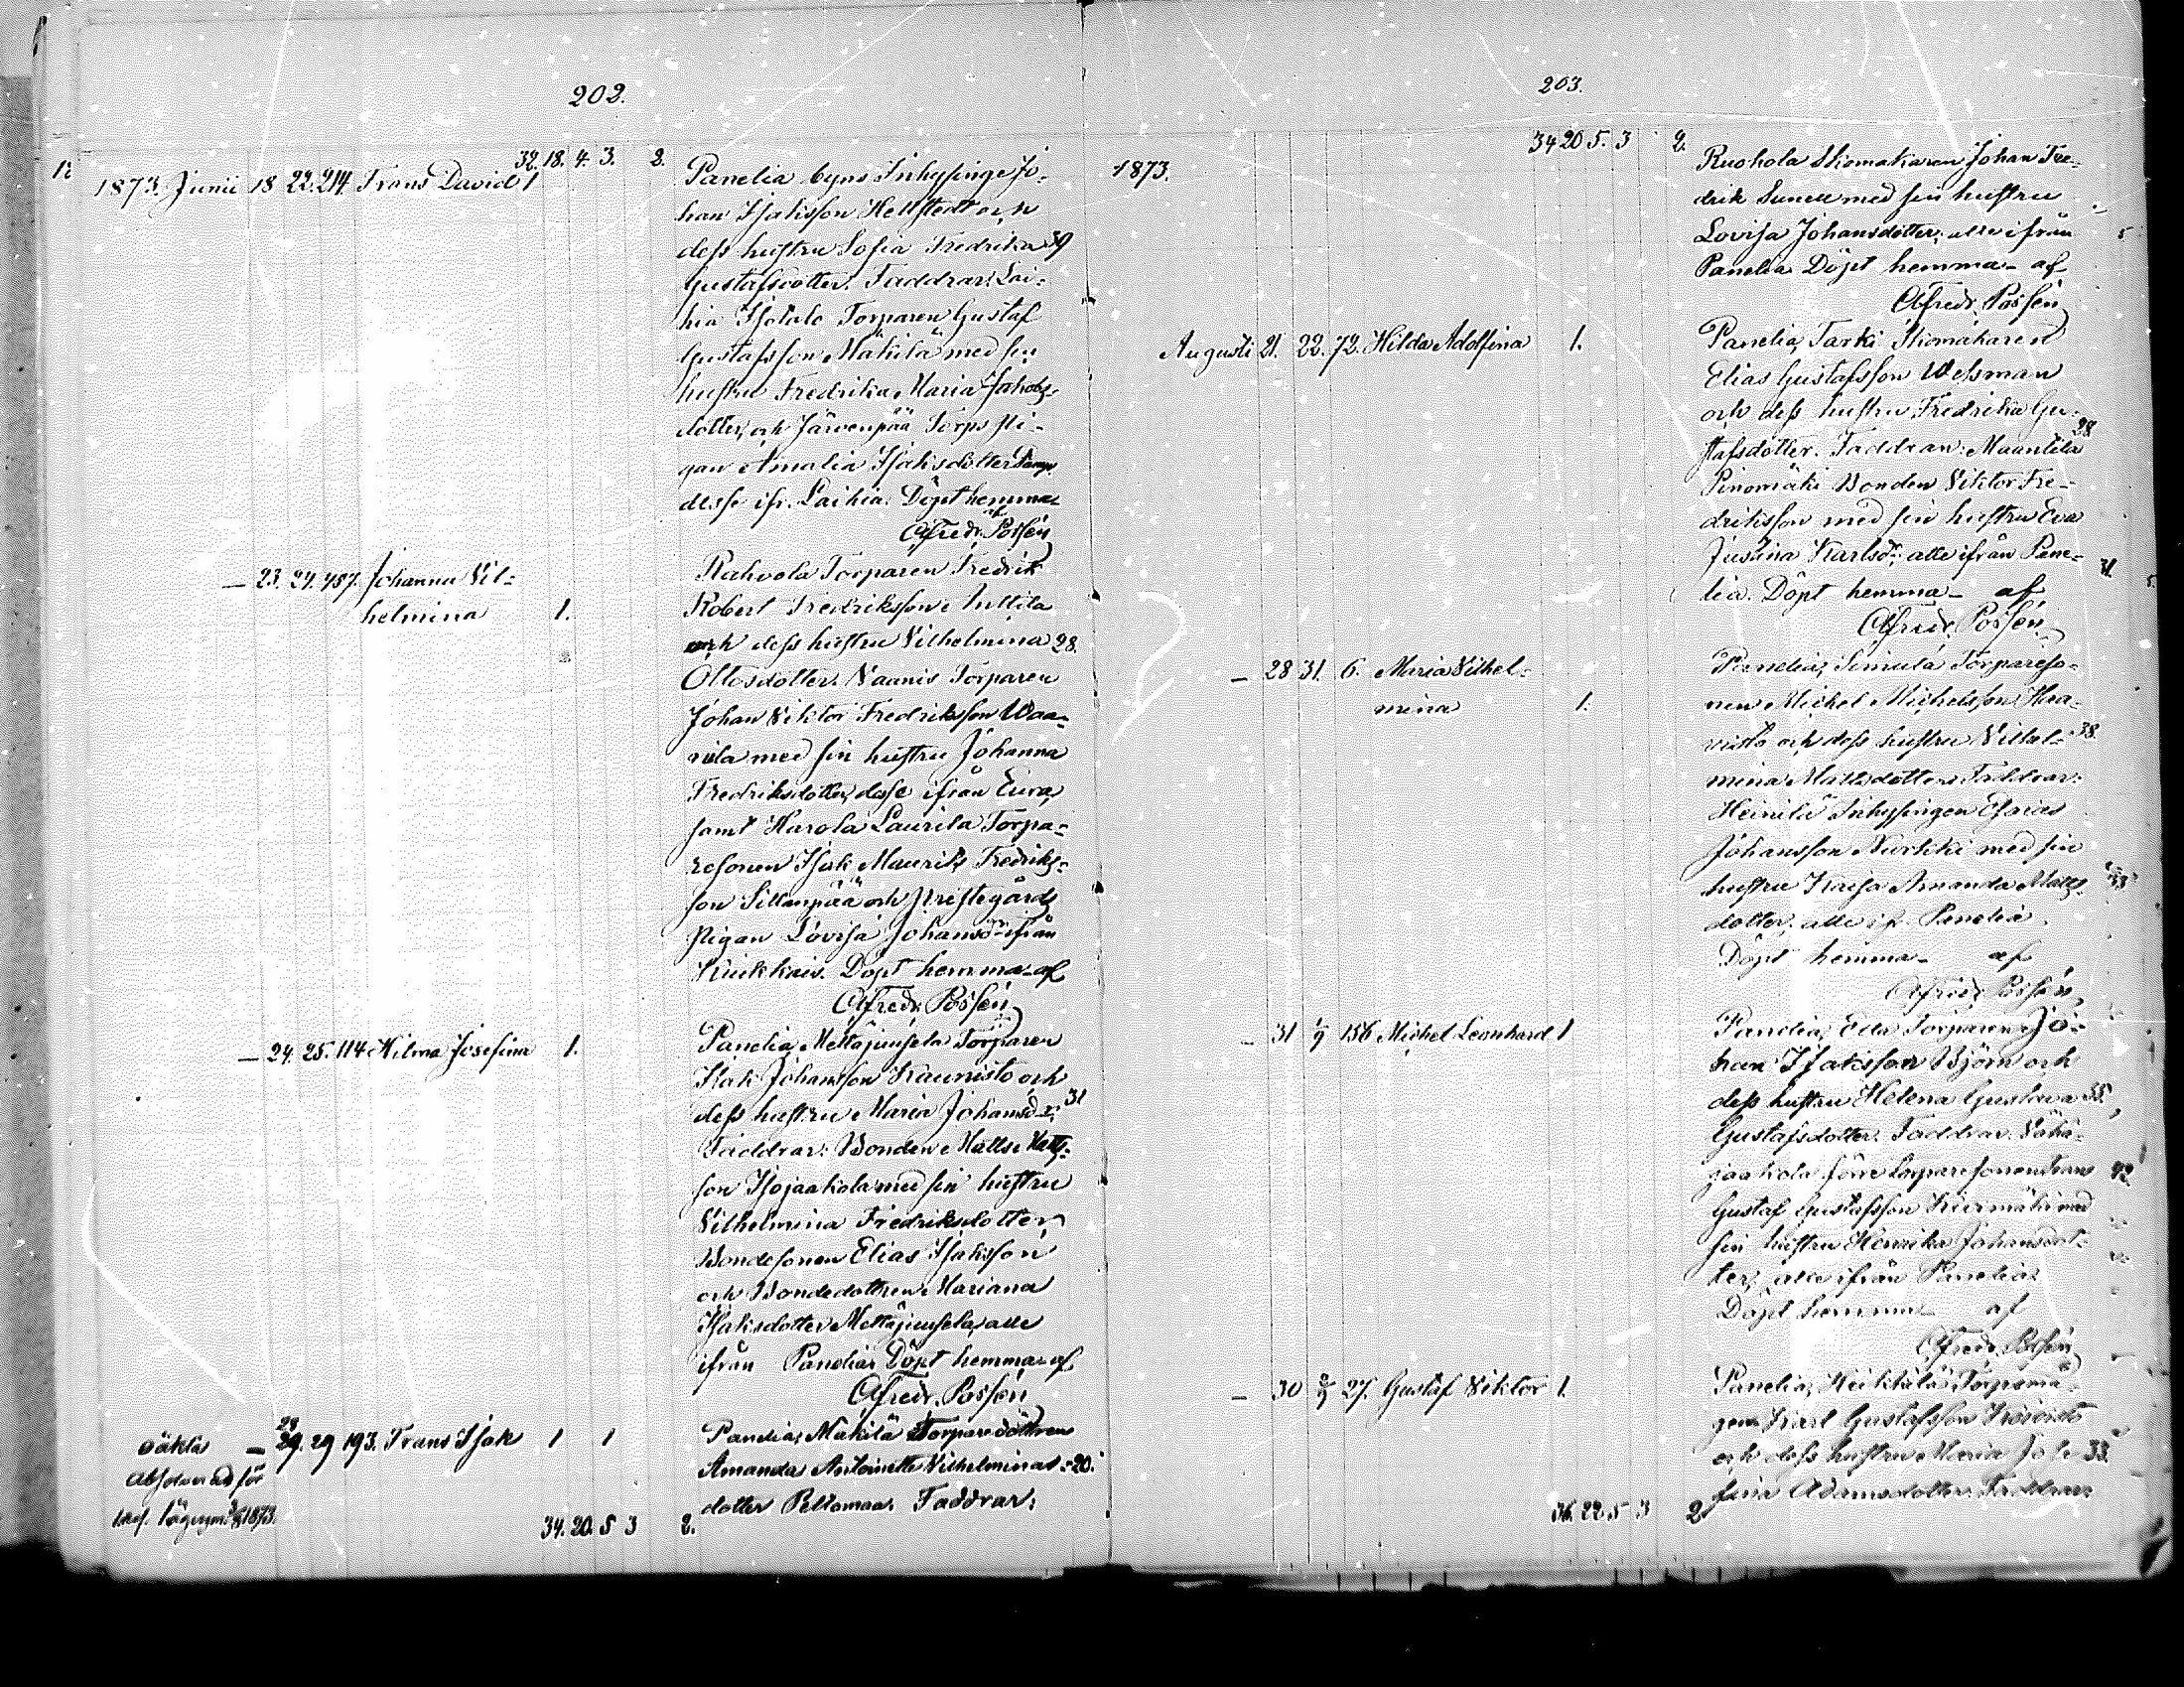 202.
32. 18. 4. 3. 2.
1873. Junii 18 22. 214. Frans David 1
Panelia byns Inhysinge Jo-
han Isaksson Hellstedt och
dess hustru Sofia Fredrika 39
Gustafsdotter. Faddrar: Lai-
hia Isotalo Torparen Gustaf
Gustafsson Mäkilä med sin
hustru Fredrika Maria Jakobs-
dotter, och Järvenpää Torps pi-
gan Amalia Isaksdotter
desse ifr. Laihia. Döpt hemma
af
Alfredr. Possén
– 23. 24. 457. Johanna Vil-
helmina 1.
Rahvola Torparen Fredrik
Robert Fredriksson Anttila
och dess hustru Vilhelmina 28.
Ottosdotter. Naanis Torparen
Johan Viktor Fredriksson Waa-
nila med sin hustru Johanna
Fredriksdotter, desse ifrån Eura,
samt Harola Laurila Torpa-
resonen Isak Maurits Fredriks-
son Sillanpää och Prestegårds
pigan Lovisa Johansdr ifrån
Kiukkais. Döpt hemma af
Alfredr. Possén
– 24. 25. 114 Hilma Josefina 1.
Panelia, Mettäjuusela Torparen
Isak Johansson Kaunisto och
dess hustru Maria Johansdr; 31
Faddrar: Bonden Matts Matts-
son Isojaakola med sin hustru
Vilhelmina Fredriksdotter,
Bondesonen Elias Isaksson
och Bondedottren Mariana
Isaksdotter Mettäjuusela, alla
ifrån Panelia. Döpt hemma af
Alfredr. Possén
oäkta – 29. 29 193. Frans Isak 1 1
28
Absolverad för
1873.
Panelia, Mäkilä Torparedottren
Amanda Antoinette Vilhelminas- 20.
dotter Peltomaa. Faddrar:
34. 20. 5 3 2.
203.
1873.
34 20 5. 3 2.
Ruohola Skomakaren Johan Fre-
drik Sunell med sin hustru
Lovisa Johansdotter, alle ifrån
Panelia. Döpt hemma af
Alfredr. Possén
Augusti 21. 22. 72. Hilda Adolfina 1.
Panelia, Tarki Skomakaren
Elias Gustafsson Wessman
och dess hustru Fredrika Gu- 28
stafsdotter. Faddrar: Maantila
Pinomäki Bonden Viktor Fre-
driksson med sin hustru Eva
Justina Karlsdr; alle ifrån Pane-
lia. Döpt hemma af
Alfredr. Possén
– 28 31. 6. Maria Vilhel-
mina 1.
Panelia, Simula Torpareso-
nen Michel Michelsson Haa-
visto och dess hustru Vilhel- 38.
mina Mattsdotter. Faddrar:
Heinilä Inhysingen Esaias
Johansson Nurkki med sin
hustru Kaisa Amanda Matts-
dotter, alle ifr. Panelia.
Döpt hemma af
Alfredr. Possén
– 31 1/9 156 Michel Leonhard 1
Panelia, Eda Torparen Jo-
han Isaksson Björn och
dess hustru Helena Gustava 35
Gustafsdotter. Faddrar: Vähä-
jaakola förre torparesonen Frans
Gustaf Gustafsson Kiirmäki med
sin hustru Henrika Johansdot-
ter, alle ifrån Panelia.
Döpt hemma af
Alfredr. Possén
– 30 2/9 27. Gustaf Viktor 1.
Panelia, Heikkilä Torpsmå-
gen Karl Gustafsson Koivisto
och dess hustru Maria Jose- 33.
fina Adamsdotter. Faddrar:
36. 22. 5 3 2